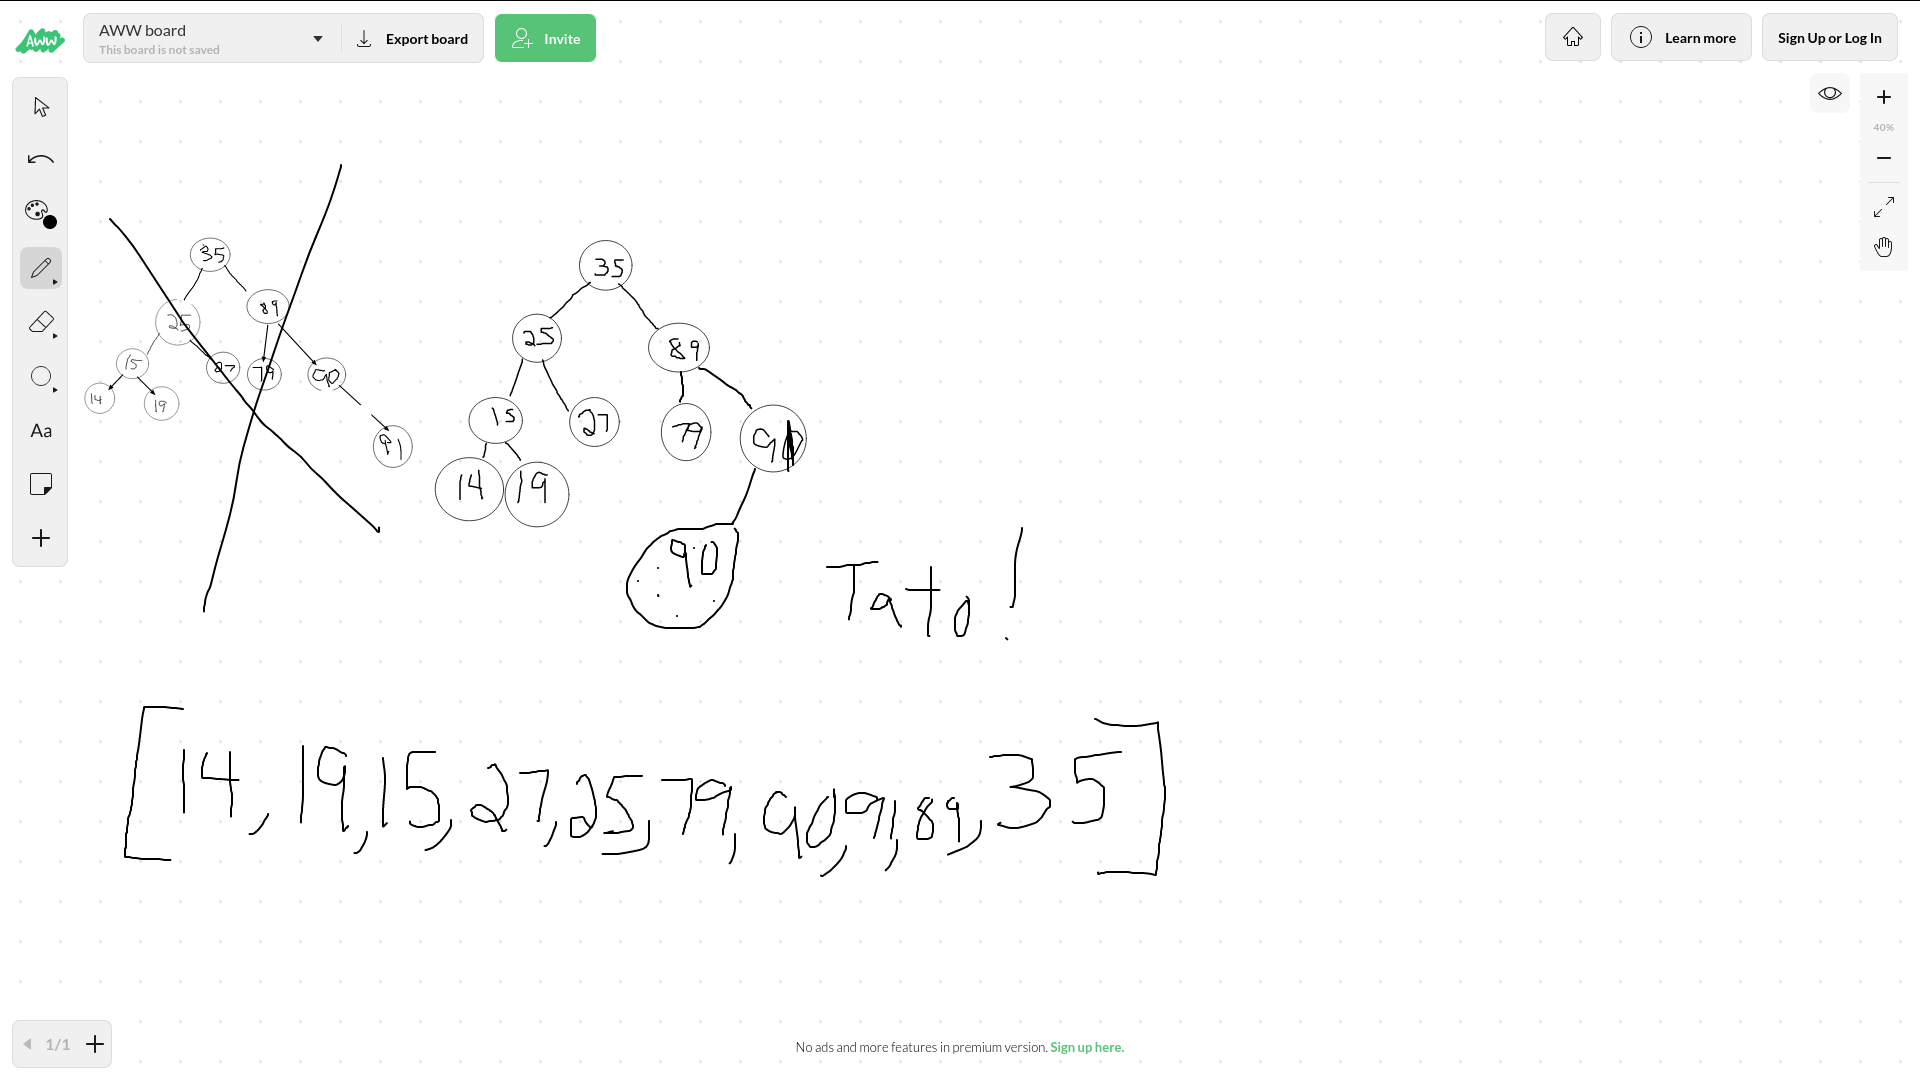 AWW
AWW board
This board is not saved
Export board
Invite
Learn more
Sign Up or Log In
40%
Aa
35
25 89
15 27 79 90
14 19
91
35
25 89
15 27 79 91
14 19
90
Tato!
[14, 19, 15, 27, 25, 79, 90, 91, 89, 35]
1/1
No ads and more features in premium version. Sign up here.